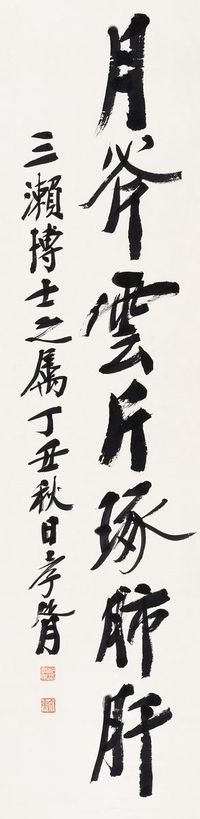 月斧雲片琢肺肝
三瀨博士之属丁丑秋日孝胥